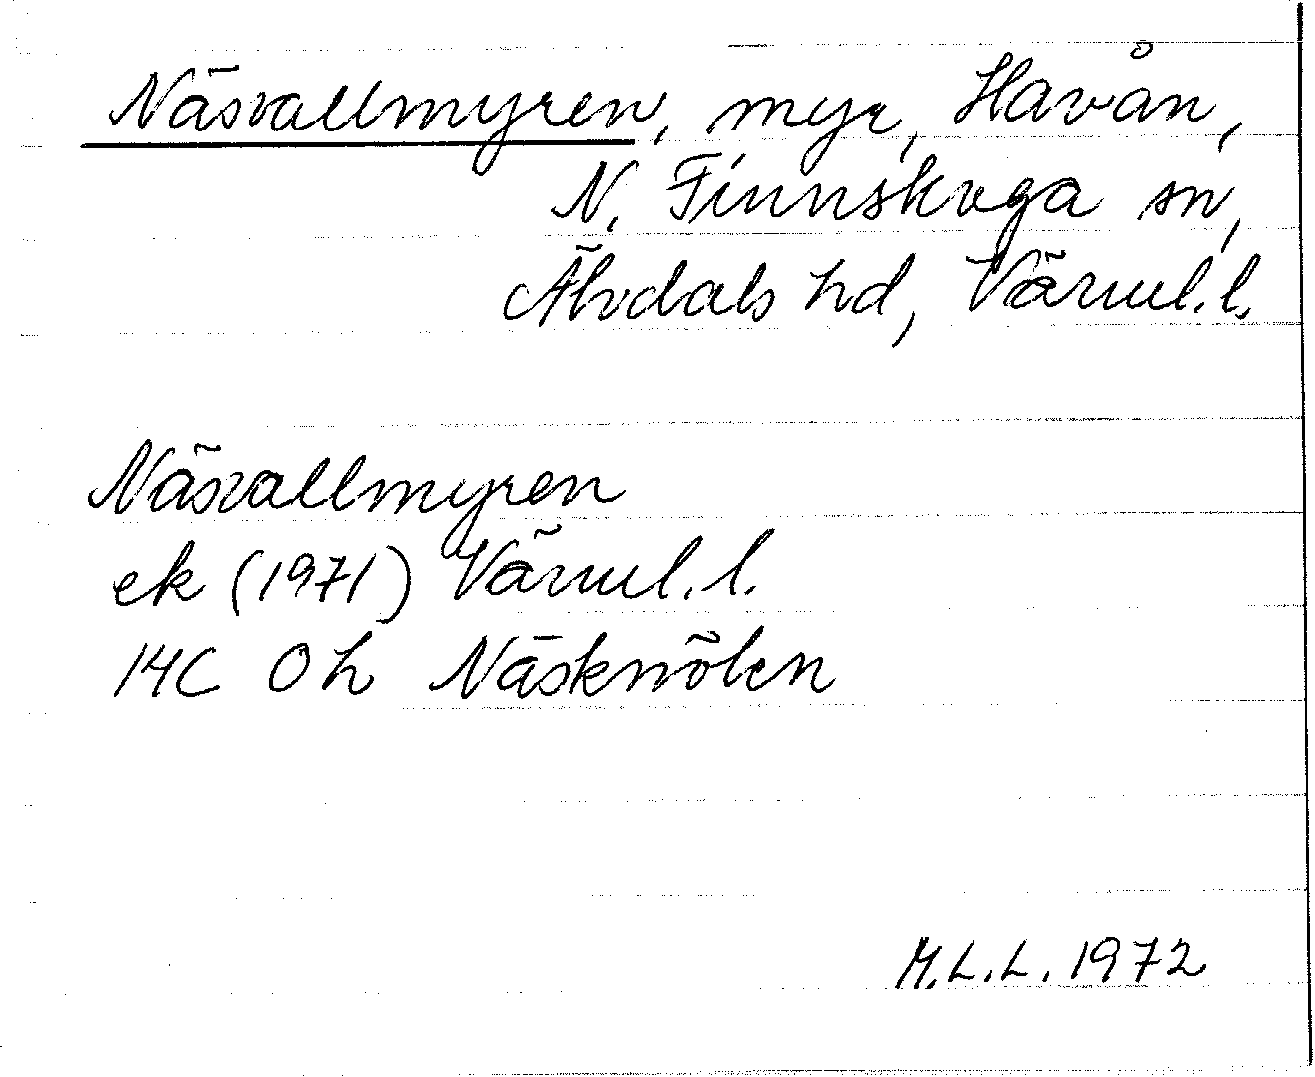 Näsvallmyren, myr, Havån,
N. Finnskoga sn,
Älvdals hd, Värml. l.
Näsvallmyren
ek (1971) Värml. l.
14C 0h Näsknölen
M.L.L. 1972